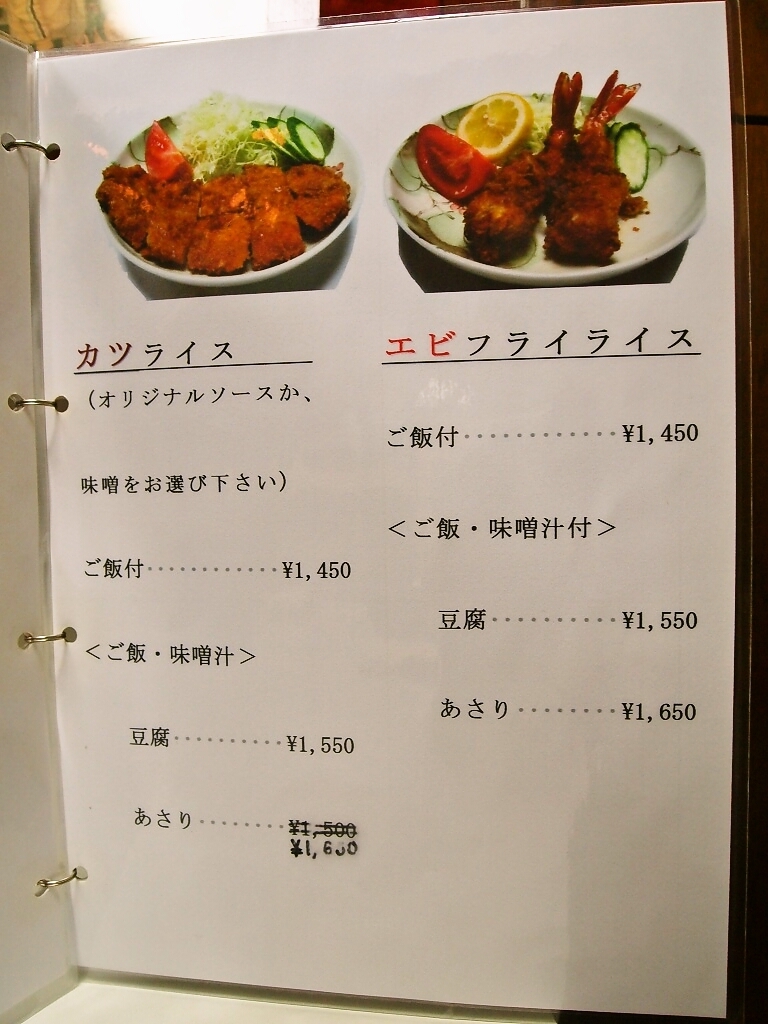 カツライス
(オリジナルソースか、
味噌をお選び下さい)
ご飯付············¥1,450
＜ご飯・味噌汁＞
豆腐··········¥1,550
あさり········¥1,500
エビフライライス
ご飯付············¥1,450
＜ご飯・味噌汁付＞
豆腐··········¥1,550
あさり········¥1,650